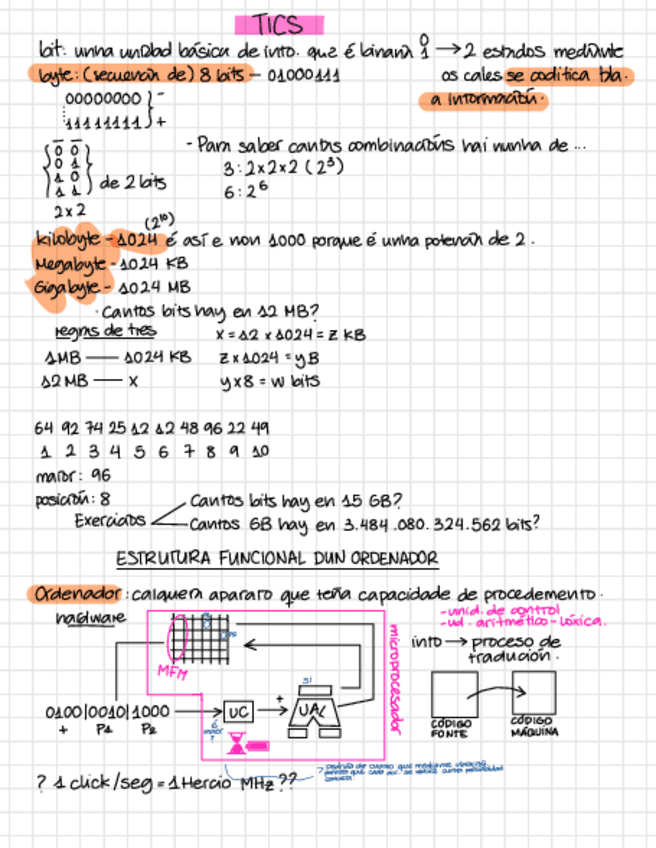 TICS
bit: unha unidad básica de info. que é binaria 0 1 → 2 estados mediante
byte: (secuencia de) 8 bits - 01000111 os cales se codifica tda.
a información.
00000000 } -
11111111 } +
0 0
0 1
1 0
1 1 de 2 bits
2x2
- Para saber cantas combinacións hai nunha de ...
3: 2x2x2 (2³)
6: 2⁶
(2¹⁰)
kilobyte - 1024 é así e non 1000 porque é unha potencia de 2.
Megabyte - 1024 KB
Gigabyte - 1024 MB
· Cantos bits hay en 12 MB?
regras de tres x = 12 x 1024 = z KB
1MB — 1024 KB z x 1024 = y B
12 MB — x y x 8 = w bits
64 92 74 25 12 12 48 96 22 49
1 2 3 4 5 6 7 8 9 10
maior: 96
posición: 8
Exercicios
Cantos bits hay en 15 GB?
Cantos GB hay en 3.484.080.324.562 bits?
ESTRUTURA FUNCIONAL DUN ORDENADOR
Ordenador: calquera aparato que teña capacidade de procedemento.
hardware
- unid. de control
- ud. aritmético-lóxica.
microprocesador
MFM
info → proceso de
tradución.
SI
0100|0010|1000
+ P1 P2
UC
+
UAL
CÓDIGO
FONTE
CÓDIGO
MÁQUINA
? 1 click/seg = 1 Hercio MHz ??